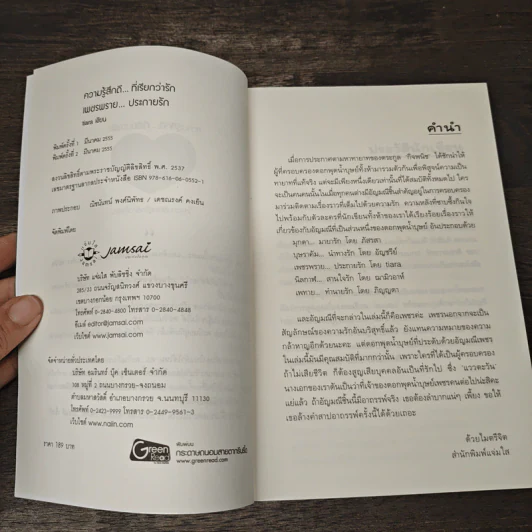 ความรู้สึกดี... ที่เรียกว่ารัก
เพชรพราย... ประกายรัก
tiara เขียน
พิมพ์ครั้งที่ 1 มีนาคม 2555
พิมพ์ครั้งที่ 2 มีนาคม 2555
สงวนลิขสิทธิ์ตามพระราชบัญญัติลิขสิทธิ์ พ.ศ. 2537
เลขมาตรฐานสากลประจำหนังสือ ISBN 978-616-06-0552-1
ภาพประกอบ นิชนันทน์ พงศ์นิพัทธ / เตชณรงค์ คงเย็น
จัดพิมพ์โดย
jamsai
บริษัท แจ่มใส พับลิชชิ่ง จำกัด
285/33 ถนนจรัญสนิทวงศ์ แขวงบางขุนศรี
เขตบางกอกน้อย กรุงเทพฯ 10700
โทรศัพท์ 0-2840-4800 โทรสาร 0-2840-4848
อีเมล์ editor@jamsai.com
เว็บไซต์ www.jamsai.com
จัดจำหน่ายทั่วประเทศโดย
บริษัท อมรินทร์ บุ๊ค เซ็นเตอร์ จำกัด
108 หมู่ที่ 2 ถนนบางกรวย-จงถนอม
ตำบลมหาสวัสดิ์ อำเภอบางกรวย จ.นนทบุรี 11130
โทรศัพท์ 0-2423-9999 โทรสาร 0-2449-9561-3
เว็บไซต์ www.naiin.com
ราคา 189 บาท
Green Read
กระดาษถนอมสายตากรีนรี้ด
www.greenread.com
คำนำ
เมื่อการประกาศตามหาทายาทของตระกูล
ผู้ที่ครอบครองดอกพุดน้ำบุศย์ทั้งห้ามารวมตัวกันเพื่อพิสูจน์ความเป็น
ทายาทที่แท้จริง แต่จะมีเพียงหนึ่งเดียวเท่านั้นที่ได้สมบัติทั้งหมดไป ใคร
จะเป็นคนคนนั้นในเมื่อทุกคนต่างมีอัญมณีชิ้นสำคัญอยู่ในการครอบครอง
มาร่วมติดตามเรื่องราวที่เต็มไปด้วยความรัก ความหลังที่ซาบซึ้งกินใจ
ไปพร้อมกับตัวละครที่นักเขียนทั้งห้าของเราได้เรียงร้อยเรื่องราวให้
เกี่ยวข้องกับอัญมณีที่เป็นส่วนหนึ่งของดอกพุดน้ำบุศย์ อันประกอบด้วย
มุกดา... มายารัก โดย ภัสรสา
บุษราคัม... นำทางรัก โดย อัญชรีย์
เพชรพราย... ประกายรัก โดย tiara
นิลกาฬ... สานใจรัก โดย ณามิวอาห์
เพทาย... ทำนายรัก โดย ภิญญดา
และอัญมณีที่จะกล่าวในเล่มนี้ก็คือเพชรค่ะ เพชรนอกจากจะเป็น
สัญลักษณ์ของความรักอันบริสุทธิ์แล้ว ยังแทนความหมายของความ
กล้าหาญอีกด้วยนะคะ แต่ดอกพุดน้ำบุศย์ที่ประดับด้วยอัญมณีเพชร
ในเล่มนี้มันมีคุณสมบัติที่มากกว่านั้น เพราะใครที่ได้เป็นผู้ครอบครอง
ถ้าไม่เสียชีวิต ก็ต้องสูญเสียบุคคลอันเป็นที่รักไป ซึ่ง 'แววตะวัน'
นางเอกของเราดันเป็นว่าที่เจ้าของดอกพุดน้ำบุศย์เพชรคนต่อไปน่ะสิคะ
แย่แล้ว ถ้าอัญมณีชิ้นนี้มีอาถรรพ์จริง เธอต้องลำบากแน่ๆ เพี้ยง ขอให้
เธอล้างคำสาปอาถรรพ์ครั้งนี้ได้ด้วยเถอะ
ด้วยไมตรีจิต
สำนักพิมพ์แจ่มใส